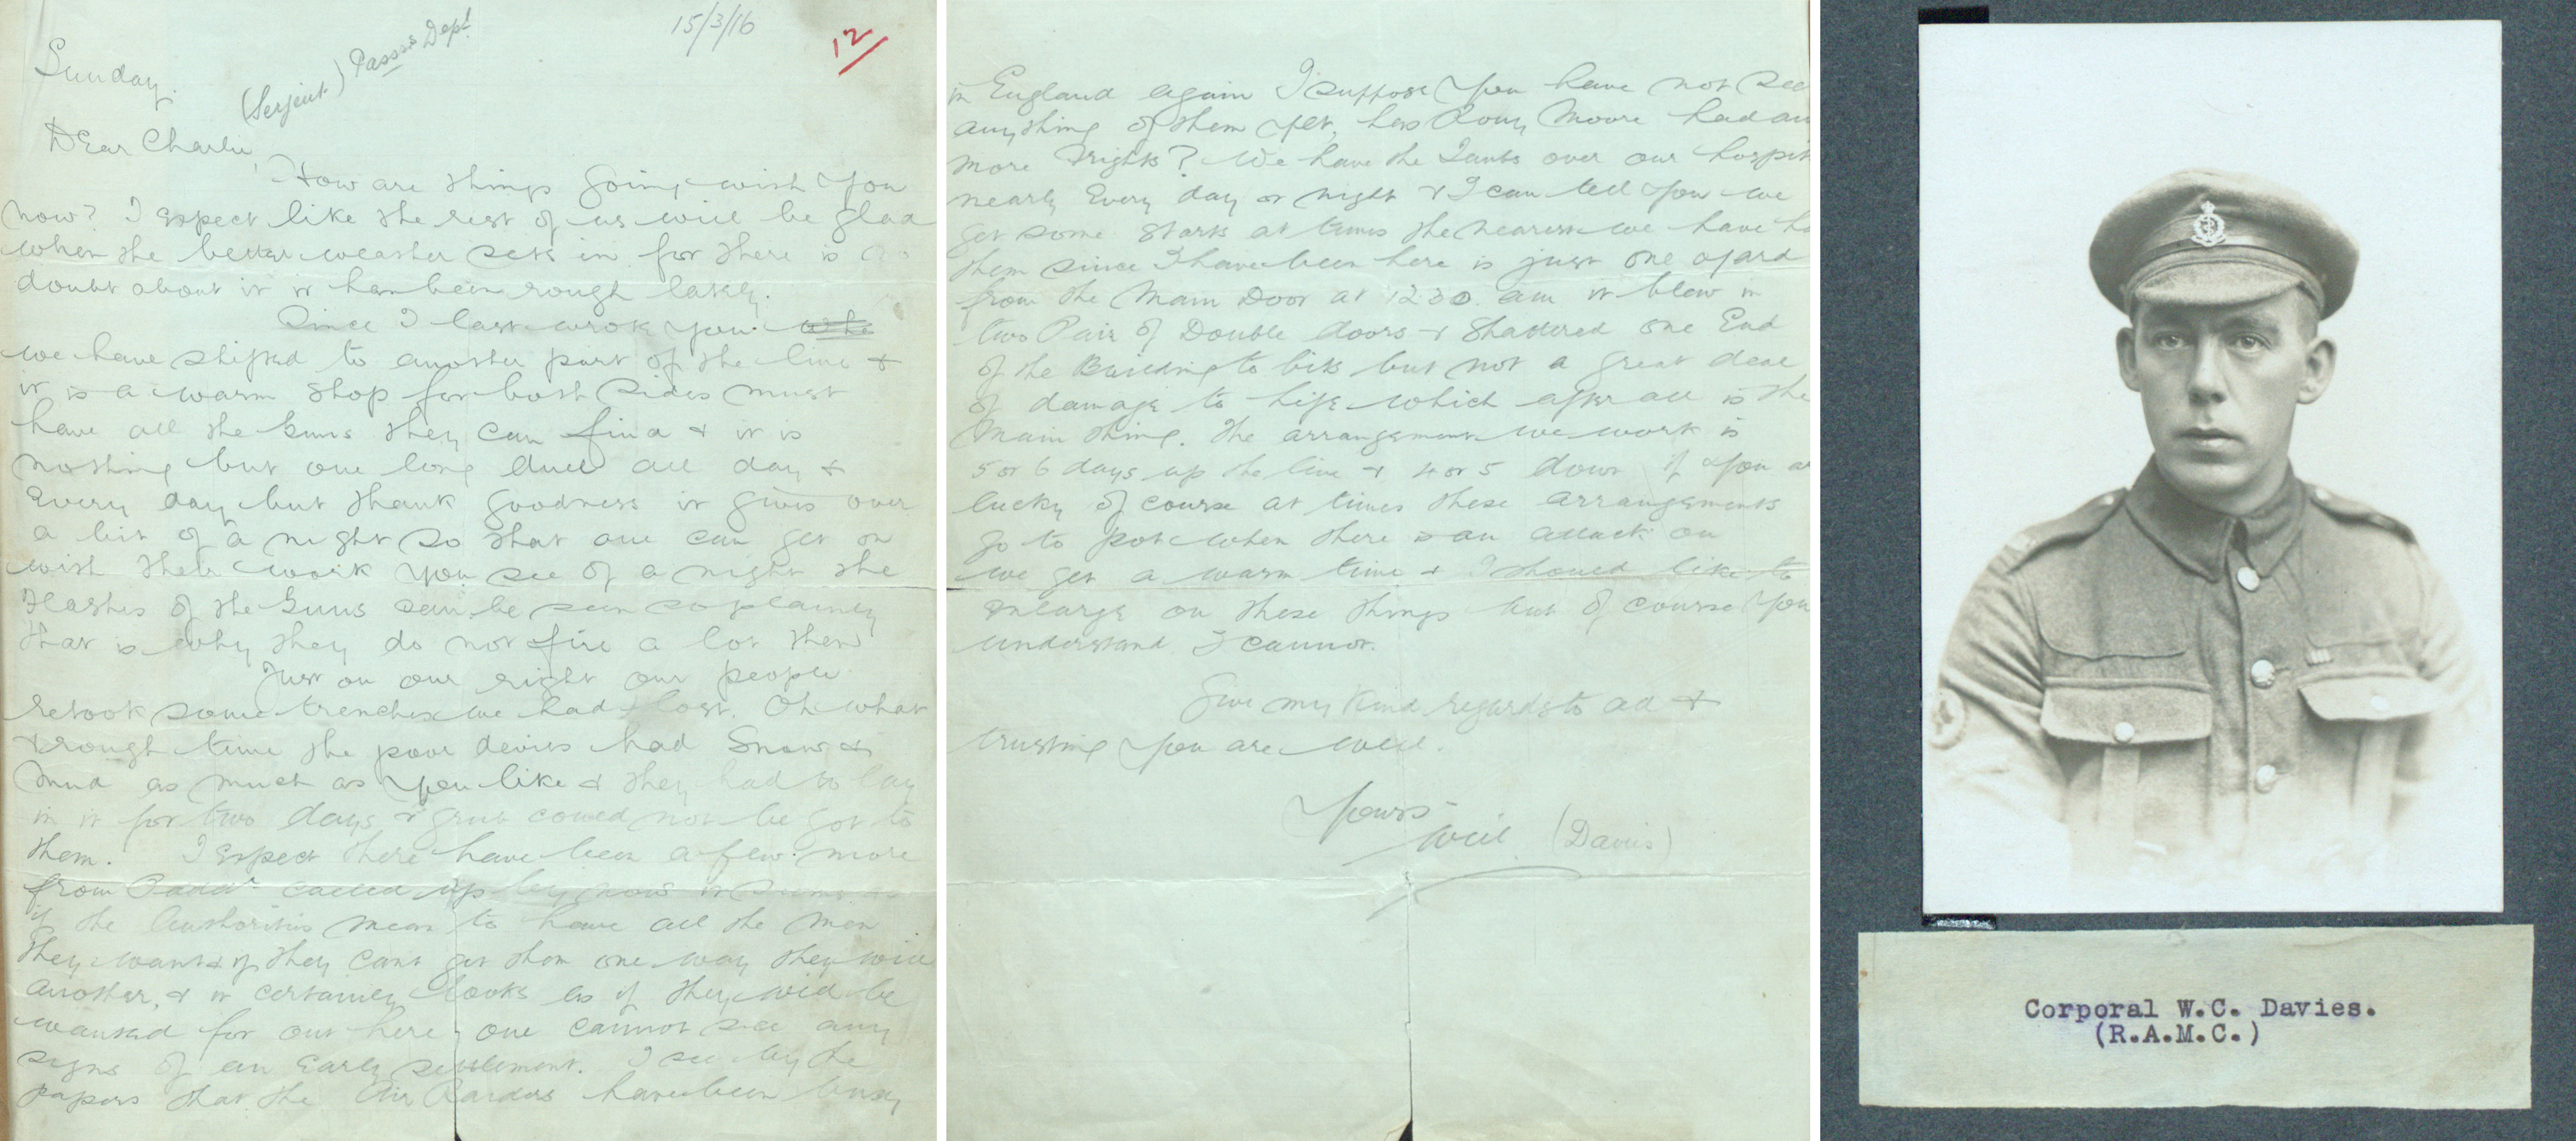 15/3/16
12
Sunday.
(Serjeut) Passrs Dept
Dear Charlie,
How are things going with you
now? I expect like the rest of us will be glad
when the better weather sets in for there is no
doubt about it it has been rough lately.
Since I last wrote you
we have shifted to another part of the line &
it is a warm shop for both sides must
have all the guns they can find & it is
nothing but one long duel all day &
Every day but thank goodness it gives over
a bit of a night so that one can get on
with their work you see of a night the
flashes of the guns can be seen so plainly
that is why they do not fire a lot then
Just on our right our people
retook some trenches we had lost. Oh what
a rough time the poor devils had Snow &
mud as much as you like & they had to lay
in it for two days & grub could not be got to
them. I expect there have been a few more
from Paddn called up by now it seems as
if the Authorities mean to have all the men
they want & if they cant get them one way they will
another, & it certainly looks as if they will be
wanted for out here, one cannot see any
signs of an Early settlement. I see by the
papers that the Air Raiders have been busy
in England again I suppose you have not see
anything of them yet, has Rouy Moore had an
more frights? We have the Taubs over our hospit
nearly Every day or night & I can tell you we
get some starts at times the nearest we have ha
them since I have been here is just one yard
from the Main Door at 12 30. am it blew in
two Pair of Double doors & Shattered one End
of the Building to bits but not a great deal
of damage to life which after all is the
Main thing. The arrangement we work is
5 or 6 days up the line & 4 or 5 down if you ar
lucky of course at times these arrangements
go to pot when there is an attack on
we get a warm time & I should like to
enlarge on these things but of course you
understand I cannot.
Give my kind regards to all &
trusting you are well.
Yours
Will (Davies)
Corporal W.C. Davies.
(R.A.M.C.)